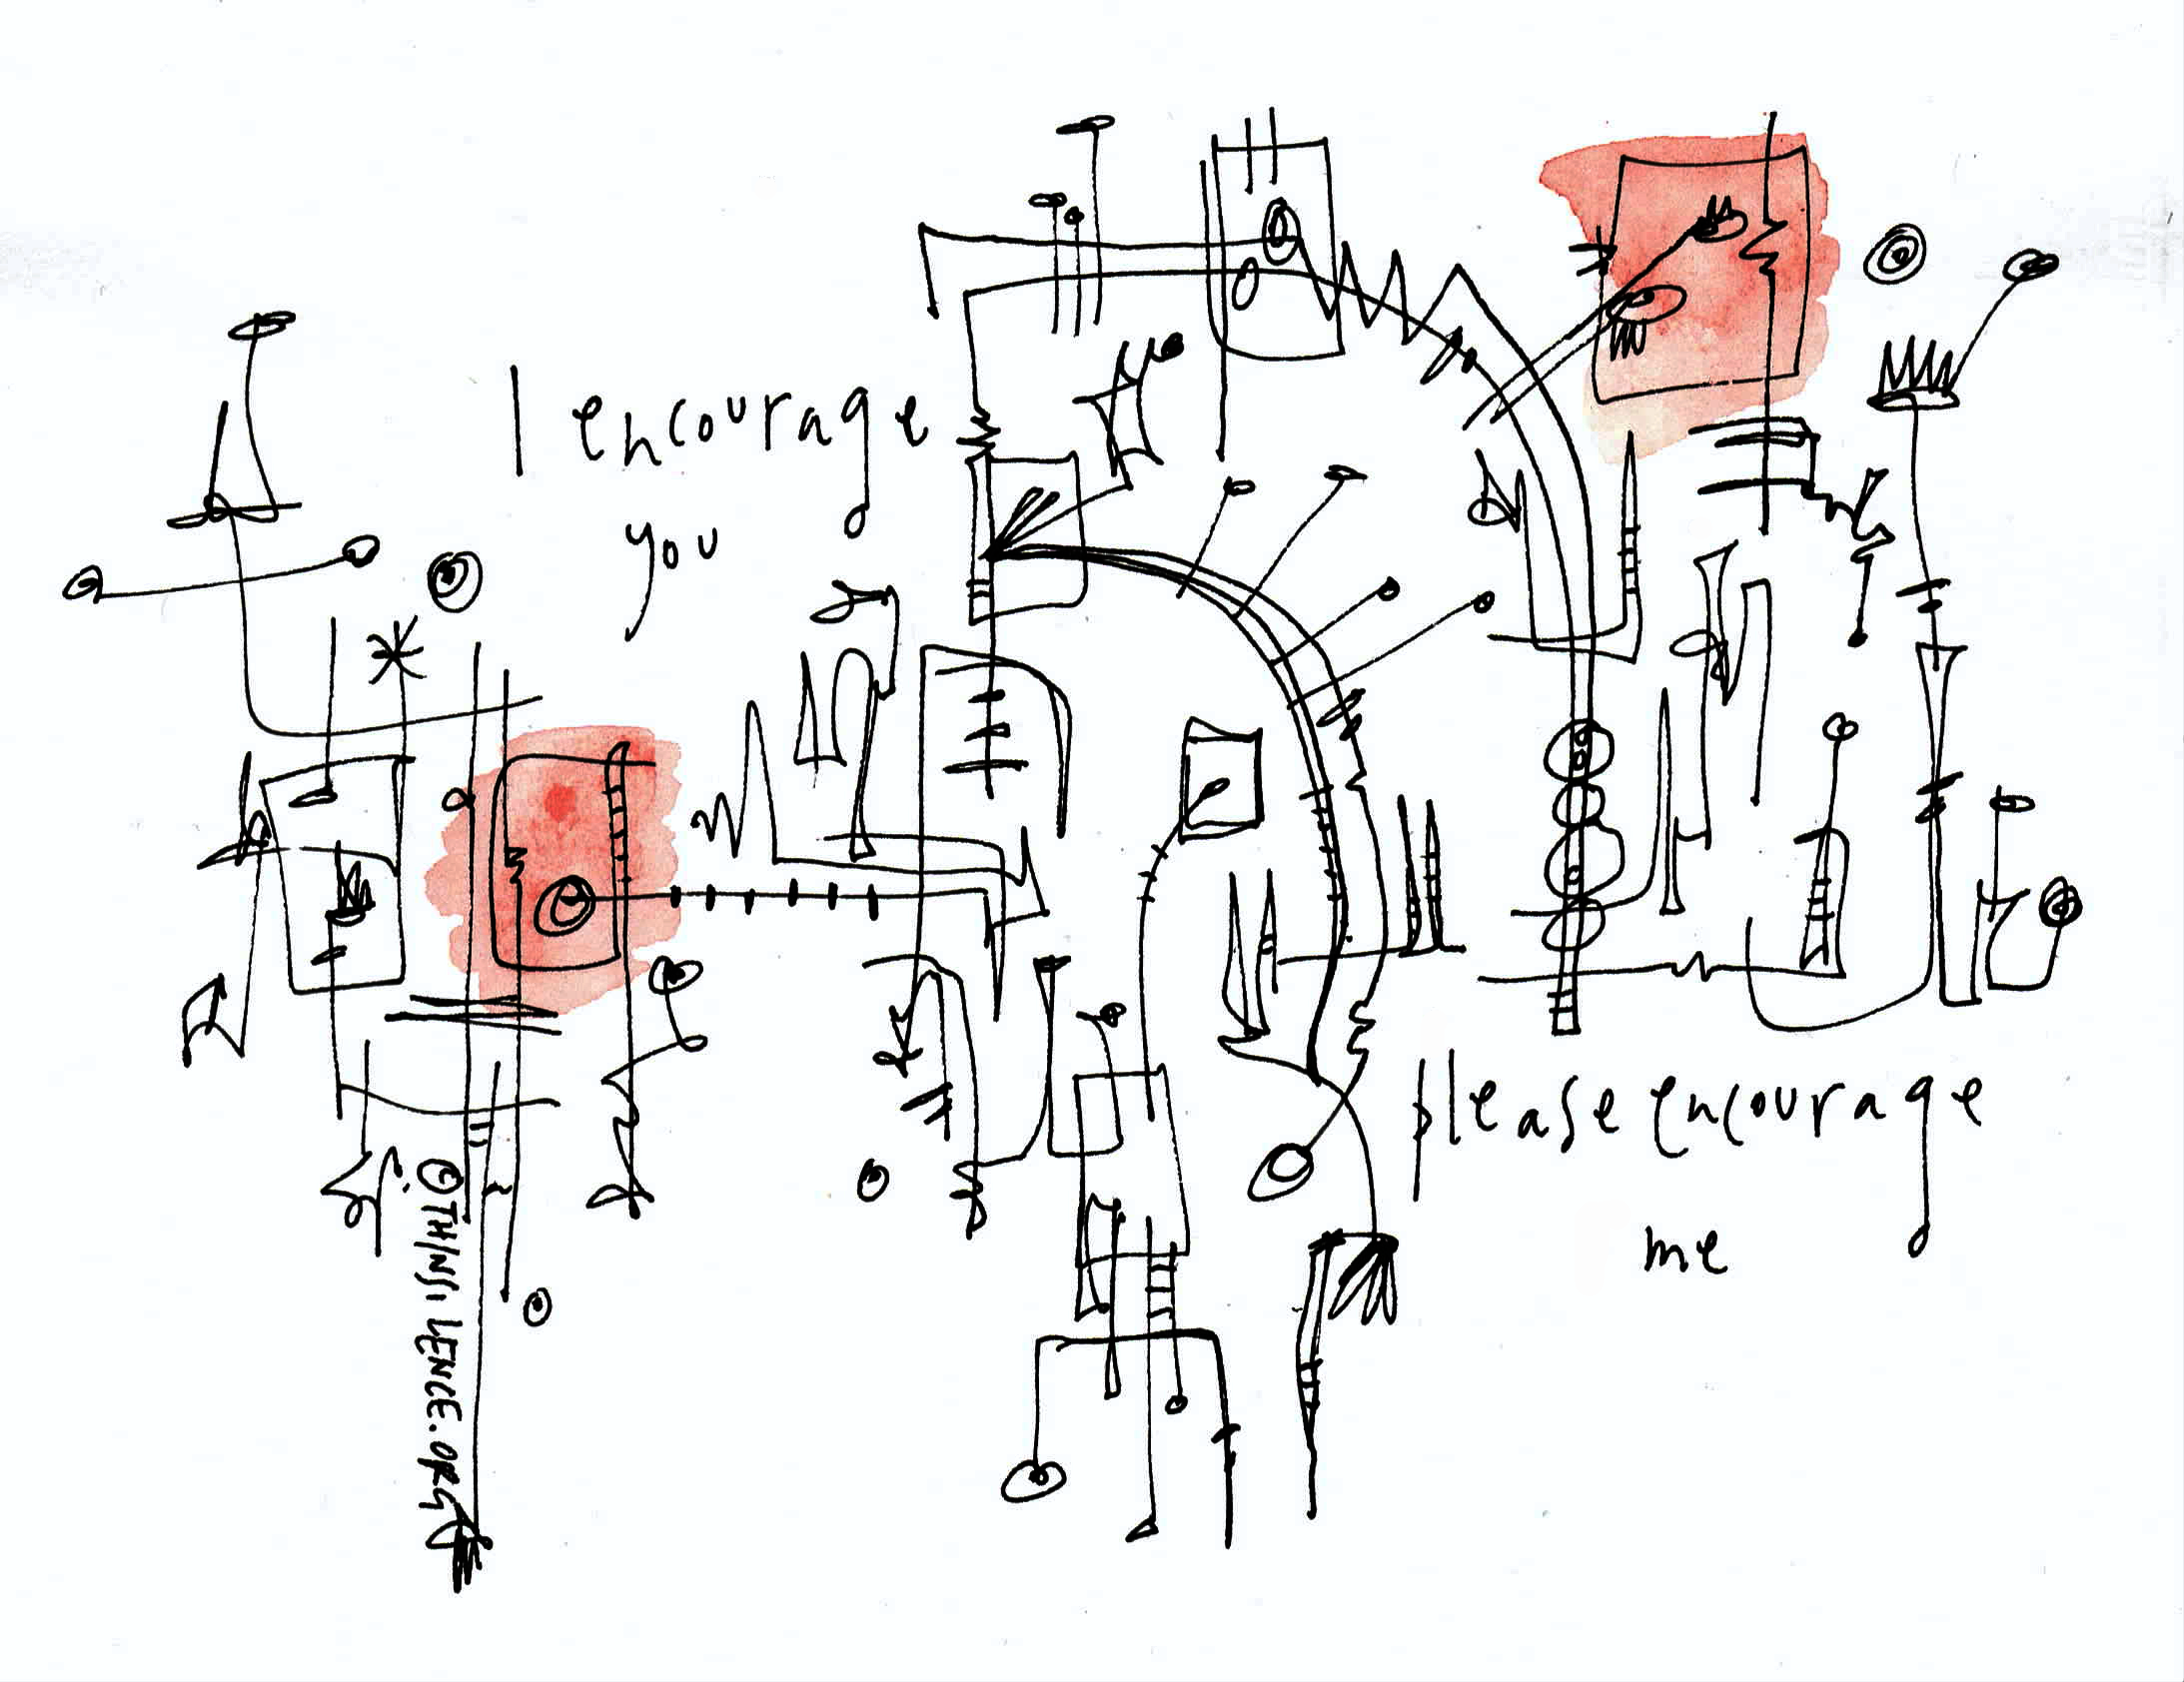 I encourage
you
please encourage
me
©THINSILENCE.ORG